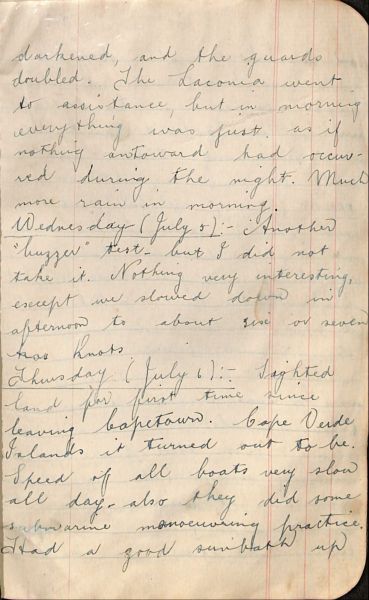 darkened, and the guards
doubled. The Laconia went
to assistance, but in morning
everything was just as if
nothing untoward had occur-
red during the night. Much
more rain in morning.
Wednesday (July 5):- Another
"buzzer" test - but I did not
take it. Nothing very interesting,
except we slowed down in
afternoon to about six or seven
knots.
Thursday (July 6):- Sighted
land for first time since
leaving Capetown. Cape Verde
Islands it turned out to be.
Speed of all boats very slow
all day - also they did some
submarine manoeuvering practice.
Had a good sunbath up